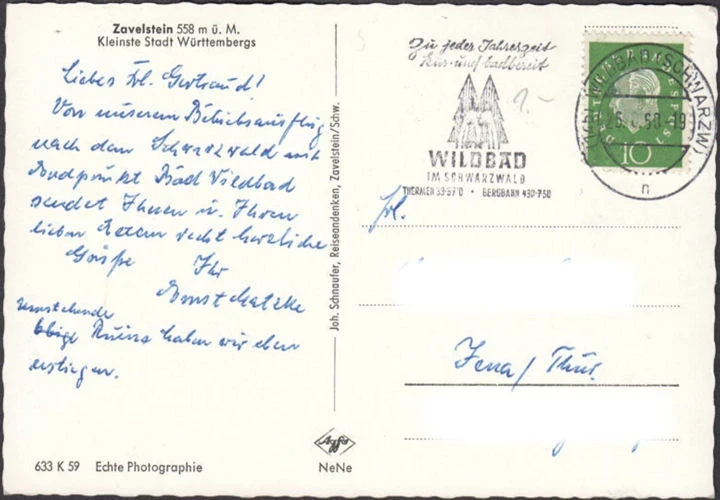 Zavelstein 558 m ü. M.
Kleinste Stadt Württembergs
Liebes Frl. Gertraud!
Von unserem Betriebsausflug
nach dem Schwarzwald mit
Endpunkt Bad Wildbad
sendet Ihnen u. Ihren
lieben Eltern recht herzliche
Grüße Ihr
Ernst
umstehende
obige Ruine haben wir eben
erstiegen.
633 K 59 Echte Photographie
Joh. Schnaufer, Reiseandenken, Zavelstein/Schw.
Agfa
NeNe
Zu jeder Jahreszeit
Kur- und badbereit
WILDBAD
IM SCHWARZWALD
THERMEN 33-37°C • BERGBAHN 430-750
1.-
WILDBAD (SCHWARZW)
DEUTSCHE BUNDESPOST
10
n
Frl.
Jena/Thür.